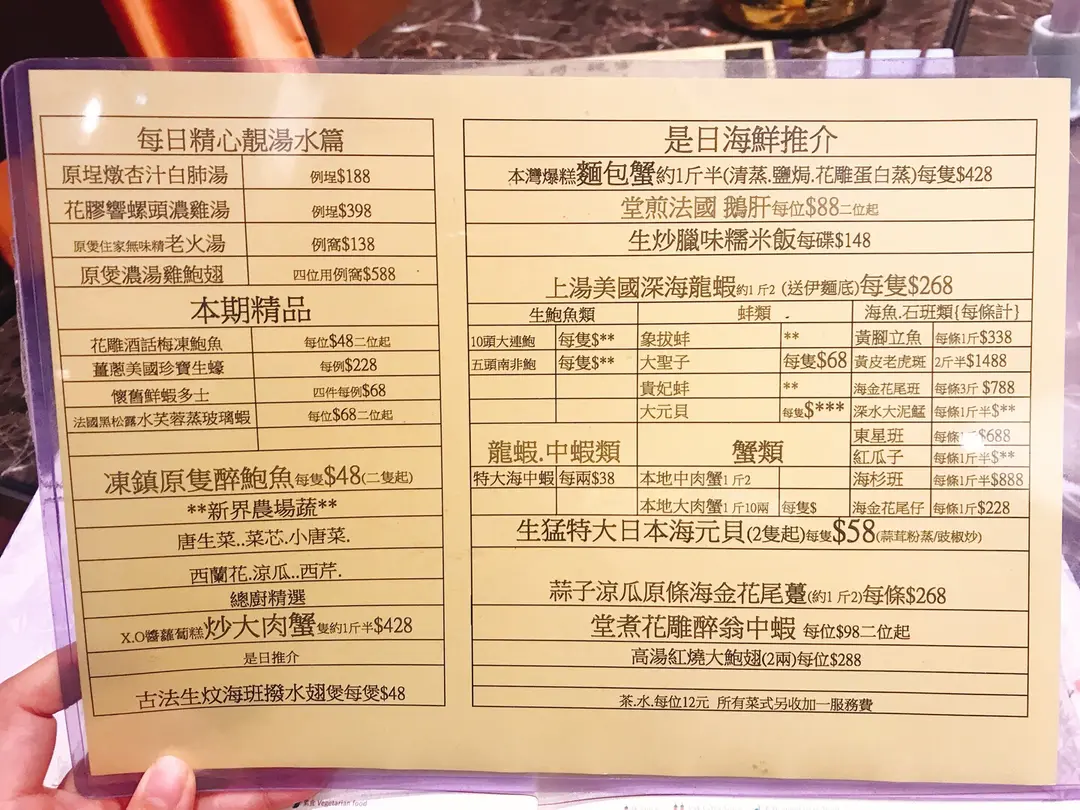 每日精心靚湯水篇
原埕燉杏汁白肺湯 例埕$188
花膠響螺頭濃雞湯 例埕$398
原煲住家無味精老火湯 例窩$138
原煲濃湯雞鮑翅 四位用例窩$588
本期精品
花雕酒話梅凍鮑魚 每位$48二位起
薑蔥美國珍寶生蠔 每例$228
懷舊鮮蝦多士 四件每例$68
法國黑松露水芙蓉蒸玻璃蝦 每位$68二位起
凍鎮原隻醉鮑魚每隻$48(二隻起)
**新界農場蔬**
唐生菜..菜芯.小唐菜.
西蘭花.涼瓜..西芹.
總廚精選
X.O醬蘿蔔糕炒大肉蟹隻約1斤半$428
是日推介
古法生炆海班撥水翅煲每煲$48
是日海鮮推介
本灣爆糕麵包蟹約1斤半(清蒸.鹽焗.花雕蛋白蒸)每隻$428
堂煎法國 鵝肝每位$88二位起
生炒臘味糯米飯每碟$148
上湯美國深海龍蝦約1斤2 (送伊麵底)每隻$268
生鮑魚類 蚌類 海魚.石班類{每條計}
10頭大連鮑 每隻$** 象拔蚌 ** 黃腳立魚 每條1斤$338
五頭南非鮑 每隻$** 大聖子 每隻$68 黃皮老虎斑 2斤半$1488
貴妃蚌 ** 海金花尾班 每條3斤 $788
大元貝 每隻$*** 深水大泥鯭 每條1斤半$**
龍蝦.中蝦類 蟹類 東星班 每條1斤$688
紅瓜子 每條1斤半$**
特大海中蝦 每兩$38 本地中肉蟹1斤2 海杉班 每條1斤半$888
本地大肉蟹1斤10兩 每隻$ 海金花尾仔 每條1斤$228
生猛特大日本海元貝(2隻起)每隻$58(蒜茸粉蒸/豉椒炒)
蒜子涼瓜原條海金花尾躉(約1斤2)每條$268
堂煮花雕醉翁中蝦 每位$98二位起
高湯紅燒大鮑翅(2兩)每位$288
茶.水.每位12元 所有菜式另收加一服務費
素食 Vegetarian food